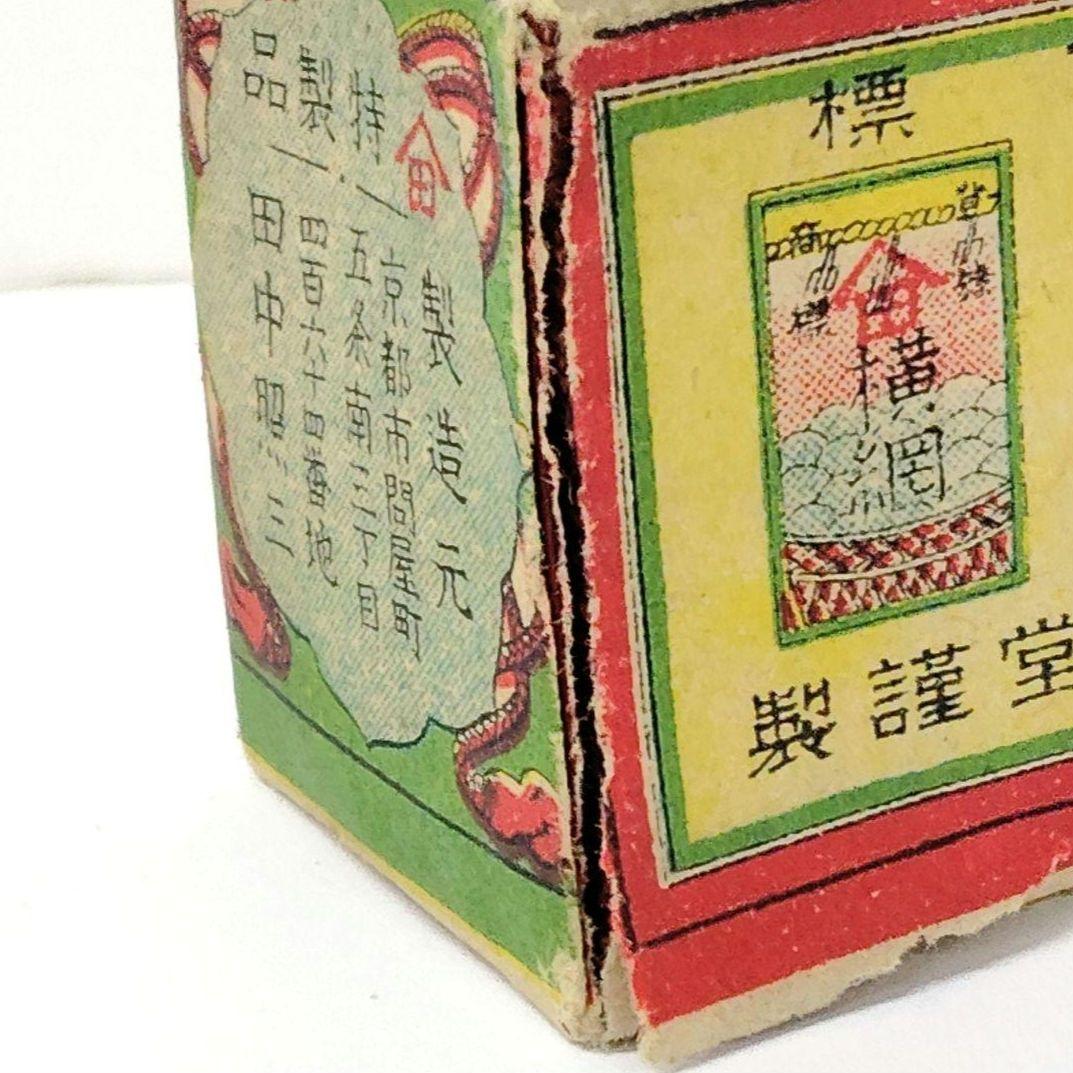 特製品
田
製造元
京都市問屋町
五条南三丁目
四百六十四番地
田中照三
標
登録
商標
田
横綱
堂謹製